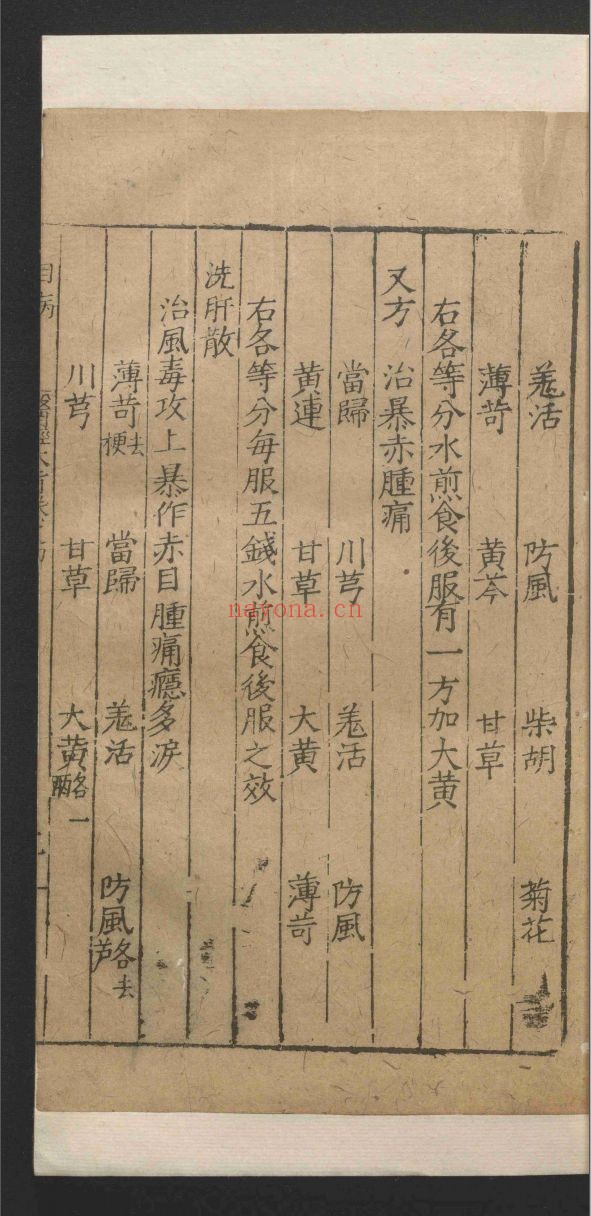 羗活 防風 柴胡 菊花
薄苛 黄芩 甘草
右各等分水煎食後服有一方加大黄
又方 治暴赤腫痛
當歸 川芎 羗活 防風
黄連 甘草 大黄 薄苛
右各等分每服五錢水煎食後服之效
洗肝散
治風毒攻上暴作赤目腫痛癮多淚
薄苛去梗 當歸 羗活 防風各去芦
川芎 甘草 大黄各一兩
目病
nayona.cn